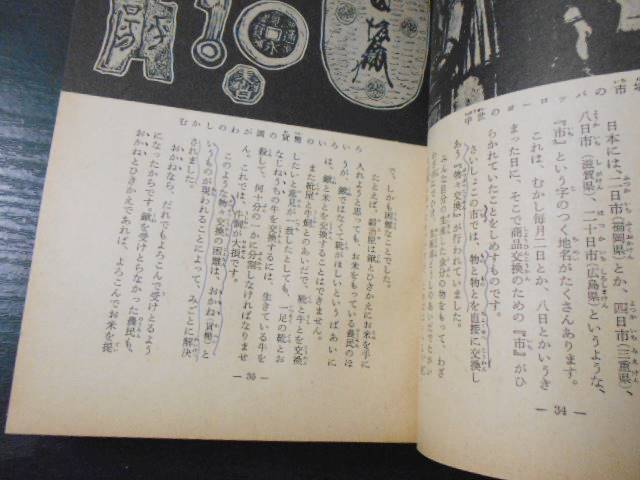 日本には、二日市(福岡県)とか、四日市(三重県)、
八日市(滋賀県)、二十日市(広島県)というような、
『市』という字のつく地名がたくさんあります。
これは、むかし毎月二日とか、八日とかいうき
まった日に、そこで商品交換のための『市』がひ
らかれていたことをしめすものです。
さいしょこの市では、物と物とを直接に交換し
あう『物々交換』が行われていました。
みんな自分の生産した余分の物をもって、わざ
— 34 —
で、しかも困難なことでした。
たとえば、鍛冶屋は鍬とひきかえにお米を手に
入れようと思っても、お米をもっている農民のほ
うが、鍬ではなくて靴がほしいというばあいに
は、鍬と米とを交換することはできません。
また靴屋と牛飼とのあいだで、靴と牛とを交換
したいと意見が一致したとしても、一足の靴とお
なじねうちの牛を交換するには、生きている牛を
殺して、何十分の一かに分割しなければなりませ
ん。これでは、牛飼が大損です。
このような物々交換の困難は、おかね(貨幣)と
いうものが現われることによって、みごとに解決
されました。
おかねなら、だれでもよろこんで受けとるよう
になったからです。鍬を受けとらなかった農民も、
おかねとひきかえであれば、よろこんでお米を提
— 35 —